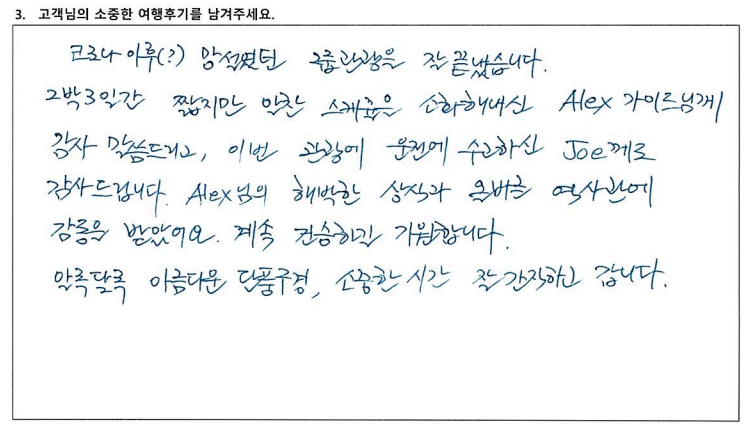 3. 고객님의 소중한 여행후기를 남겨주세요.
코로나 이후(?) 망설였던 그룹관광을 잘 끝냈습니다.
2박3일간 짧지만 알찬 스케쥴을 소화해내신 Alex 가이드님께
감사 말씀드리고, 이번 관광에 운전에 수고하신 Joe께도
감사드립니다. Alex님의 해박한 상식과 올바른 역사관에
감동을 받았어요. 계속 건승하길 기원합니다.
알록달록 아름다운 단풍구경, 소중한 시간 잘 간직하고 갑니다.